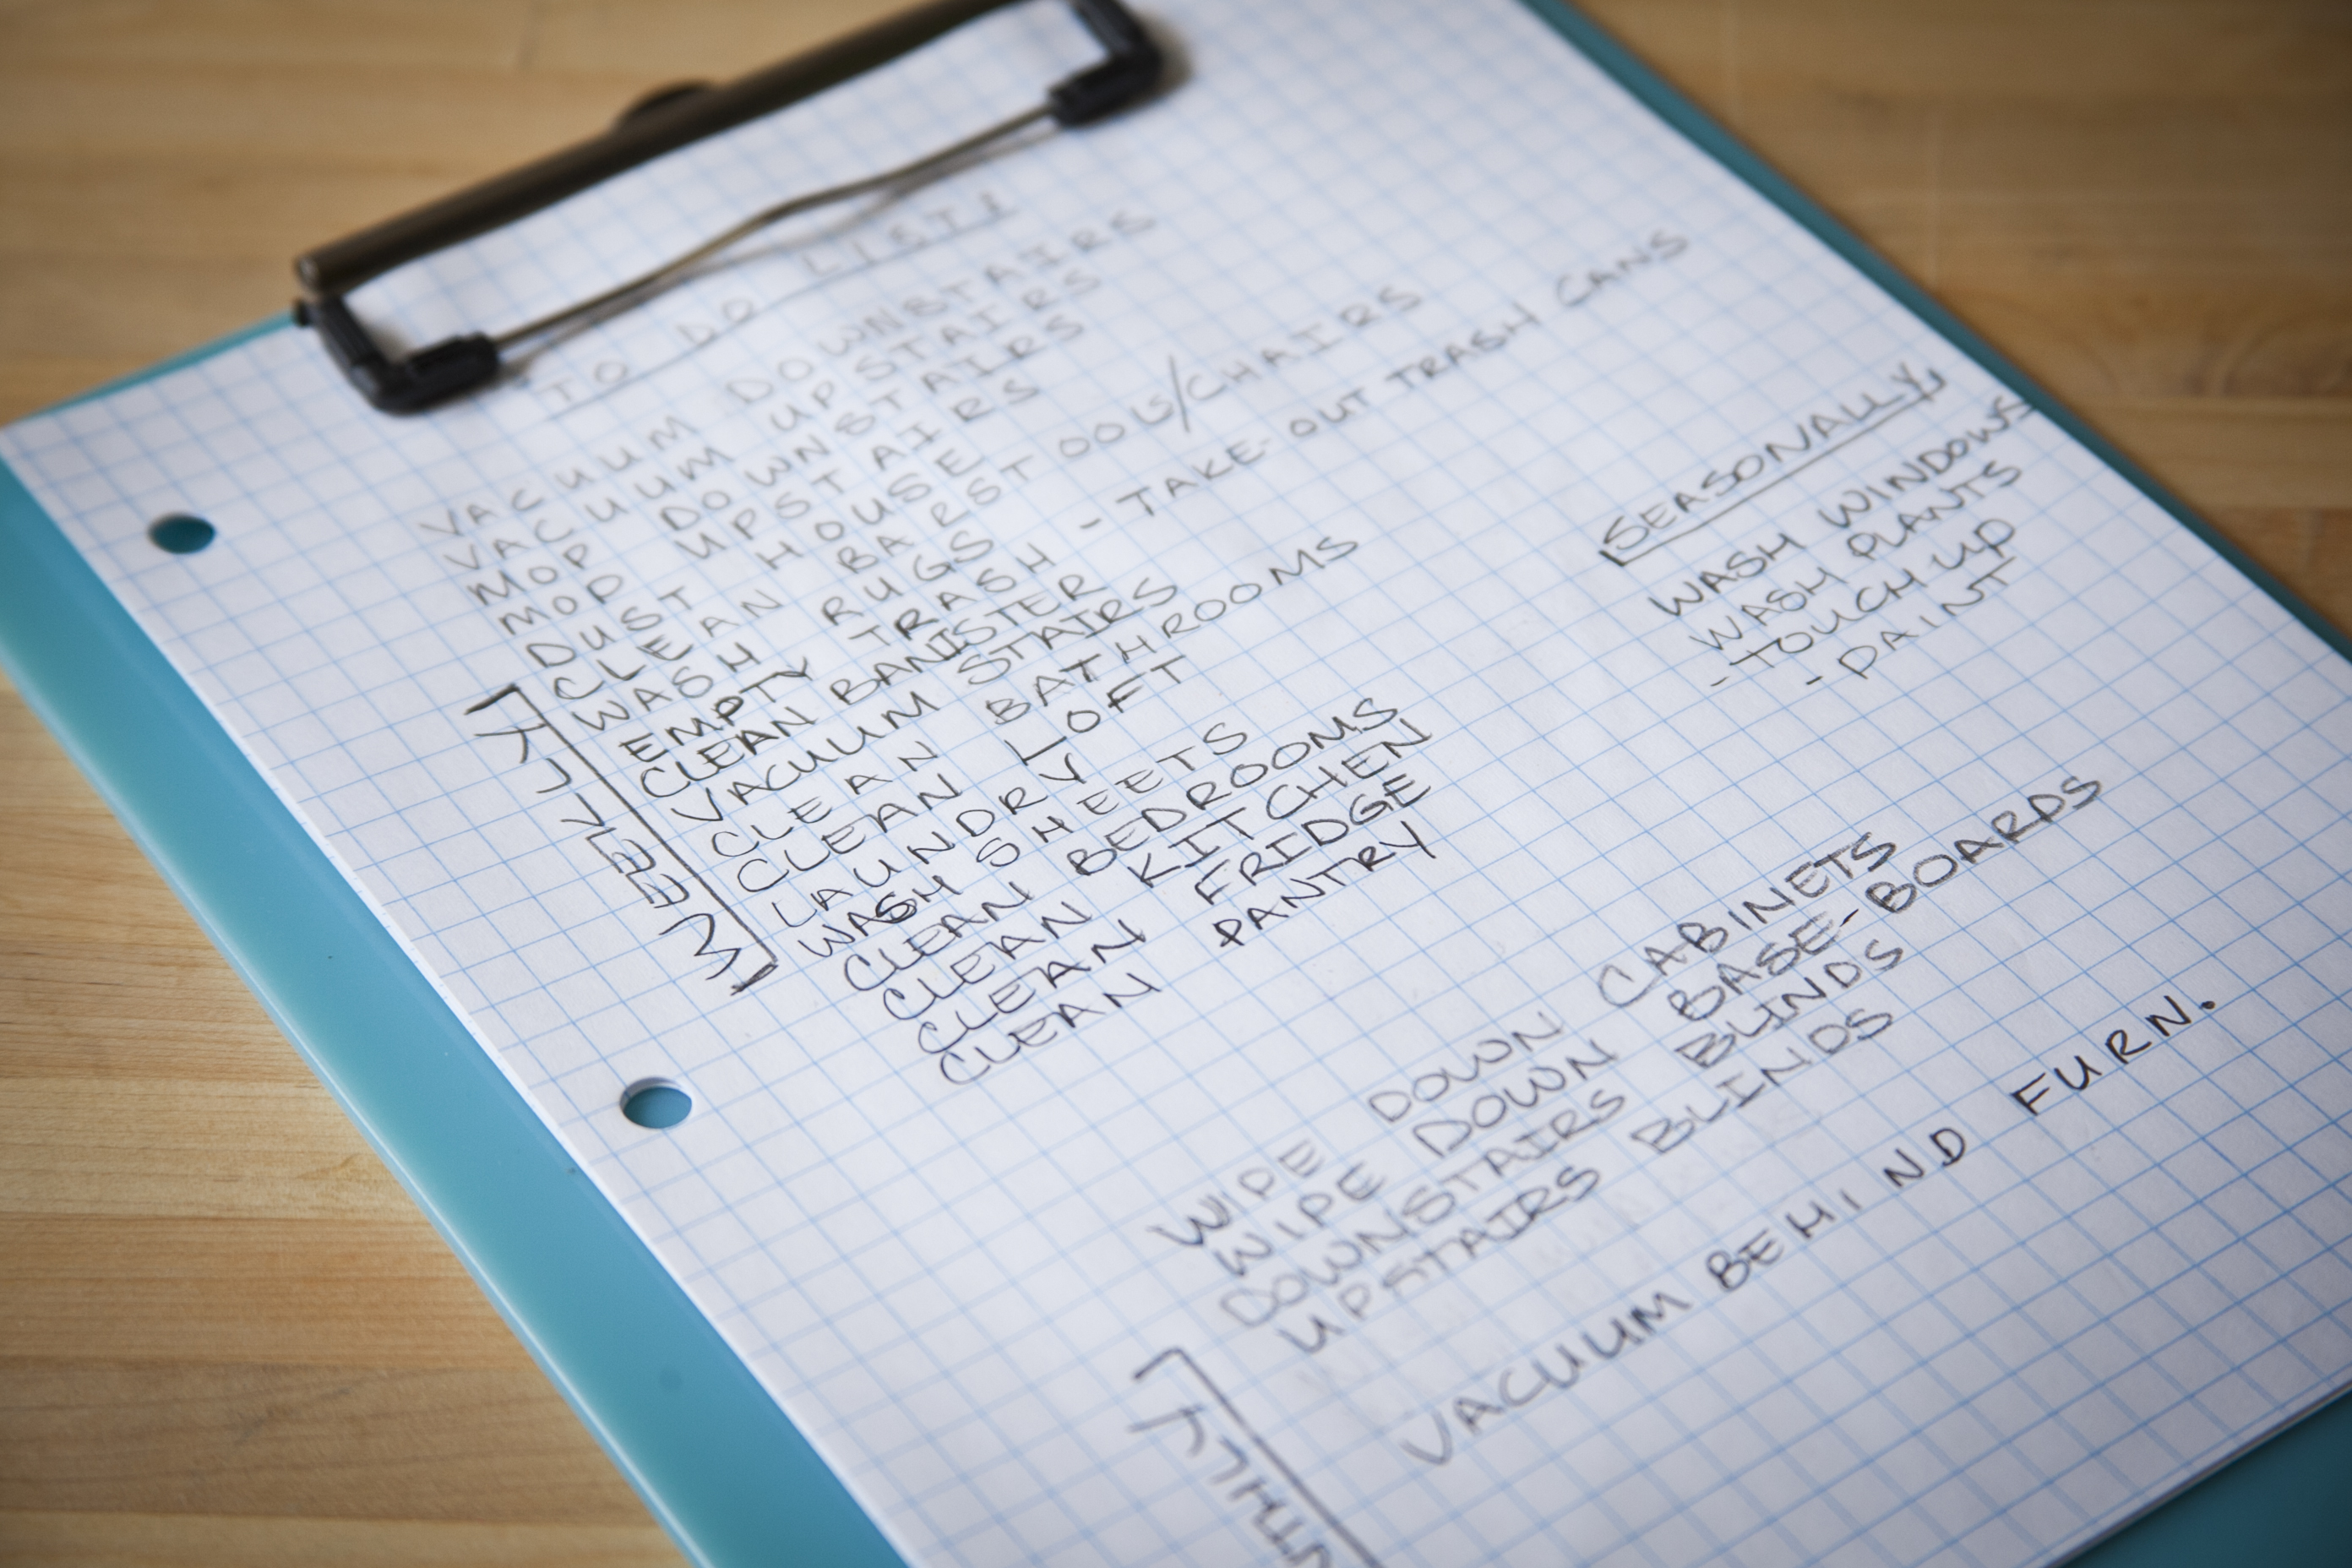 TO DO LIST!
VACUUM DOWNSTAIRS
VACUUM UPSTAIRS
MOP DOWNSTAIRS
MOP UPSTAIRS
DUST HOUSE
CLEAN BARSTOOLS/CHAIRS
WASH RUGS
EMPTY TRASH - TAKE-OUT TRASH CANS
CLEAN BANISTER
VACUUM STAIRS
CLEAN BATHROOMS
CLEAN LOFT
LAUNDRY
WASH SHEETS
CLEAN BEDROOMS
CLEAN KITCHEN
CLEAN FRIDGE
CLEAN PANTRY
WEEKLY
SEASONALLY
WASH WINDOWS
WASH PLANTS
- TOUCH UP
- PAINT
WIPE DOWN CABINETS
WIPE DOWN BASE-BOARDS
DOWNSTAIRS BLINDS
UPSTAIRS BLINDS
VACUUM BEHIND FURN.